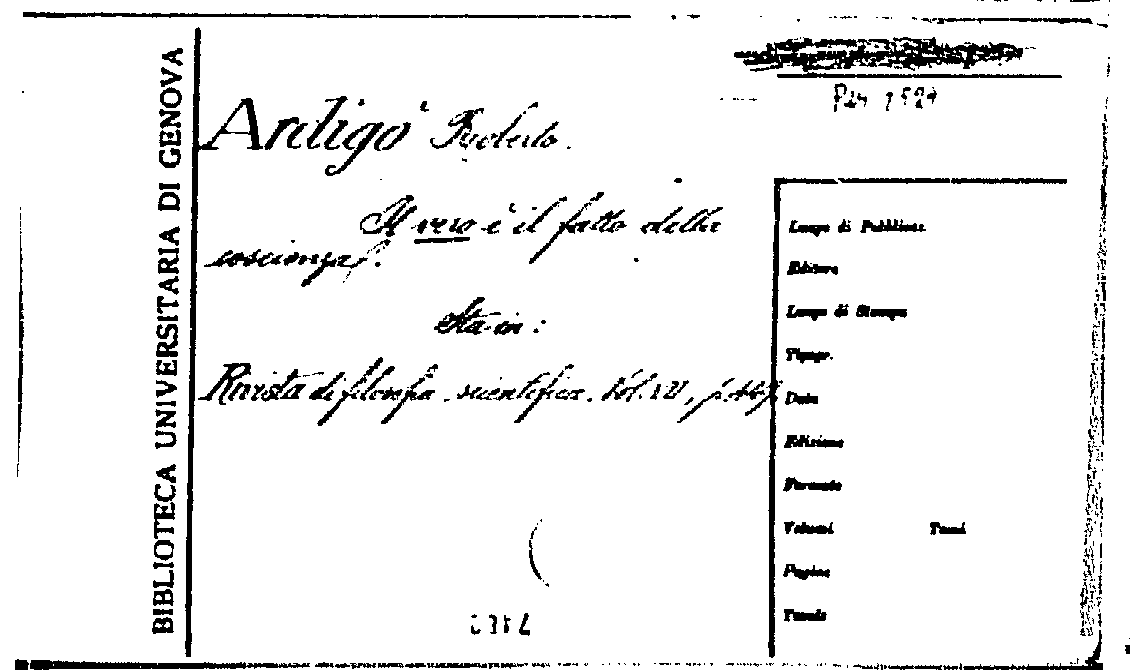 BIBLIOTECA UNIVERSITARIA DI GENOVA
Ardigò Roberto.
Il vero è il fatto della
coscienza.
Sta in:
Rivista di filosofia scientifica. Vol. VII, p.
Luogo di Pubblicaz.
Editore
Luogo di Stampa
Tipogr.
Data
Edizione
Formato
Volumi Tomi
Pagine
Tavole